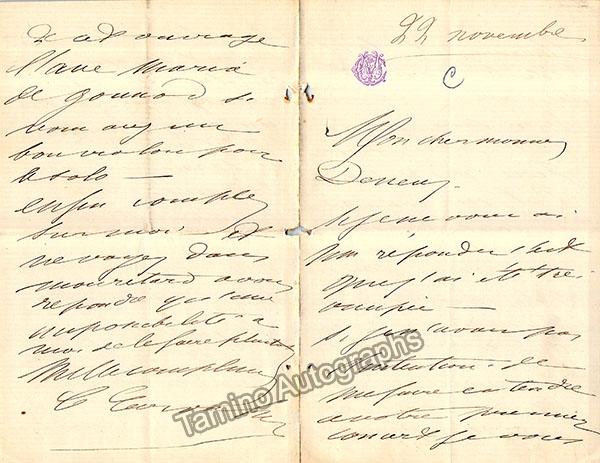 22 novembre
C
Mon cher monsieur
Deneux
si je ne vous ai
pas répondu c'est
que j'ai été très
occupée —
Si je n'avais pas
l'intention de
me faire entendre
a votre premier
concert je vous
de cet ouvrage
l'ave maria
de gounod si
vous avez un
bon violon pour
le solo —
enfin comptez
sur moi et
ne voyez dans
mon retard a vous
repondre qu'une
impossibilité a
moi de le faire plutot
Mille compliments
C
Tamino Autographs